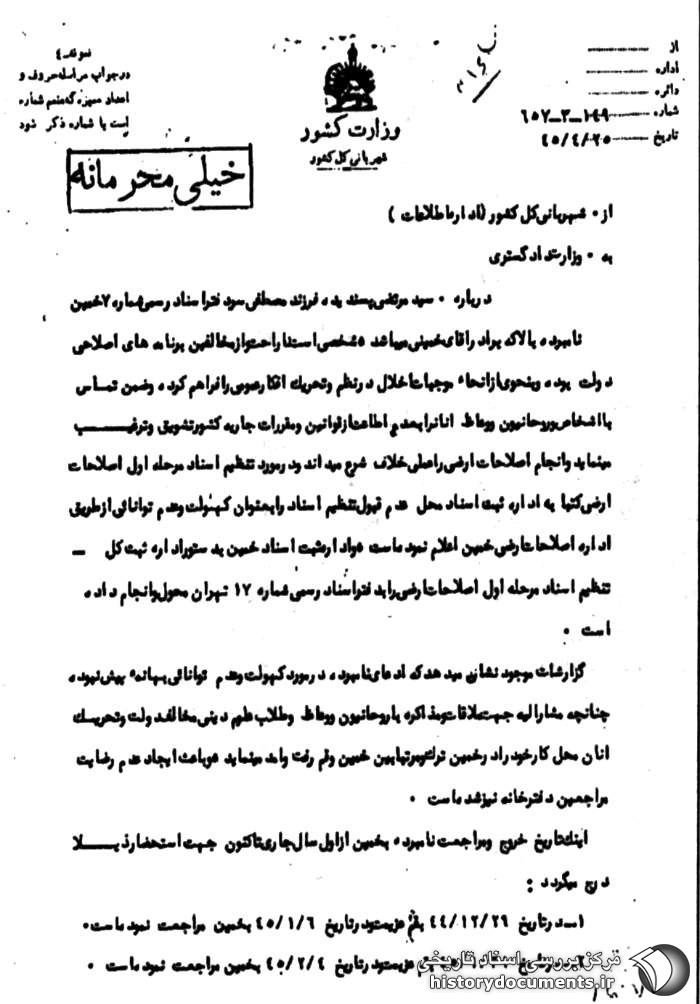 از
اداره
دائره
شماره ۱۰۹-۳-۶۵۷
تاریخ ۴۵/۴/۲۵
وزارت کشور
شهربانی کل کشور
نمونه ۴
در جواب مراسله حروف و
اعداد ممیزه که منضم شماره
است با شماره ذکر شود
خیلی محرمانه
از ۰ شهربانی کل کشور (اداره اطلاعات)
به ۰ وزارت دادگستری
درباره ۰ سید مرتضی پسندیده فرزند مصطفی سردفتر اسناد رسمی شماره ۷ خمین
نامبرده بالا که برادر آقای خمینی میباشد شخصی است ناراحت و از مخالفین برنامه های اصلاحی
دولت بوده و بنحوی از انحاء موجبات اخلال در نظم و تحریک افکار عمومی را فراهم کرده و ضمن تماس
با اشخاص و روحانیون و وعاظ آنان را بعدم اطاعت از قوانین و مقررات جاریه کشور تشویق و ترغیب
مینماید و انجام اصلاحات ارضی را عملی خلاف شرع میداند و در مورد تنظیم اسناد مرحله اول اصلاحات
ارضی کتبا به اداره ثبت اسناد محل عدم قبول تنظیم اسناد را بعنوان کهولت و عدم توانائی از طریق
اداره اصلاحات ارضی خمین اعلام نموده است و اداره ثبت اسناد خمین بدستور اداره ثبت کل –
تنظیم اسناد مرحله اول اصلاحات ارضی را بدفتر اسناد رسمی شماره ۱۷ تهران محول و انجام داده
است ۰
گزارشات موجود نشان میدهد که ادعای نامبرده در مورد کهولت و عدم توانائی بهانه بیش نبوده
چنانچه مشارالیه جهت ملاقات و مذاکره با روحانیون و وعاظ و طلاب علوم دینی مخالف دولت و تحریک
آنان محل کار خود را در خمین ترک و مرتبا بین خمین و قم رفت و آمد مینماید و باعث ایجاد عدم رضایت
مراجعین دفترخانه نیز شده است ۰
اینک تاریخ خروج و مراجعت نامبرده بخمین از اول سال جاری تاکنون جهت استحضار ذیلا
درج میگردد :
۱– در تاریخ ۴۴/۱۲/۲۹ بقم عزیمت و در تاریخ ۴۵/۱/۶ بخمین مراجعت نموده است۰
عزیمت و در تاریخ ۴۵/۲/۴ بخمین مراجعت نموده است ۰
مرکز بررسی اسناد تاریخی
historydocuments.ir